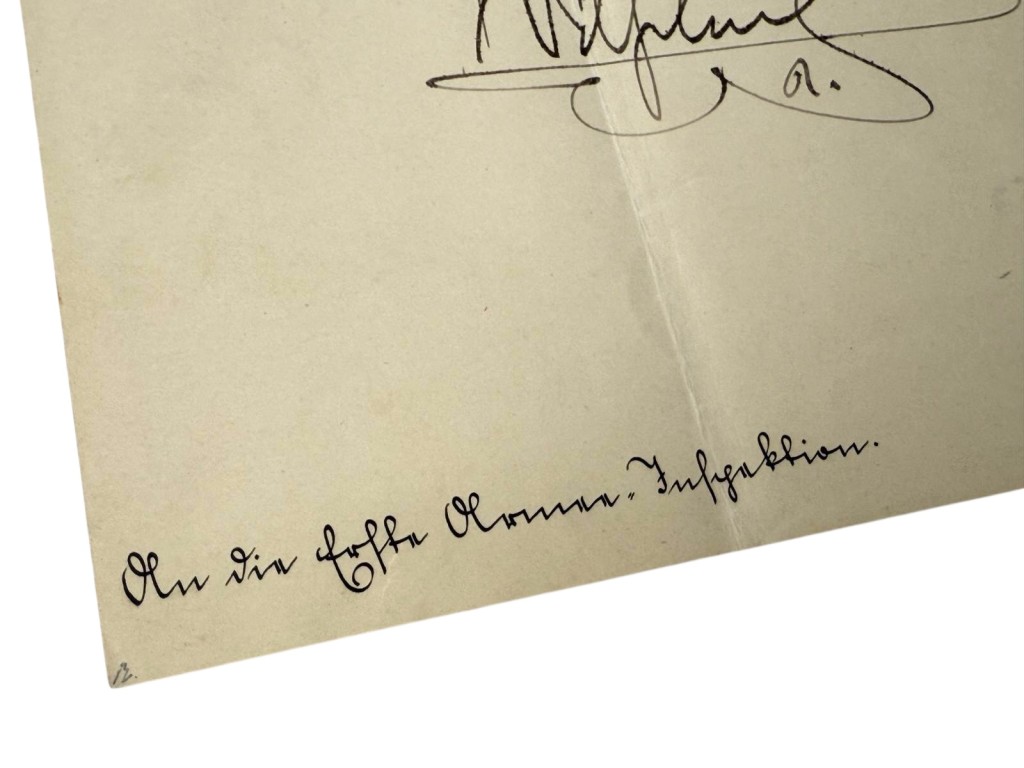 Wilhelm
R.
An die Erste Armee-Inspektion.